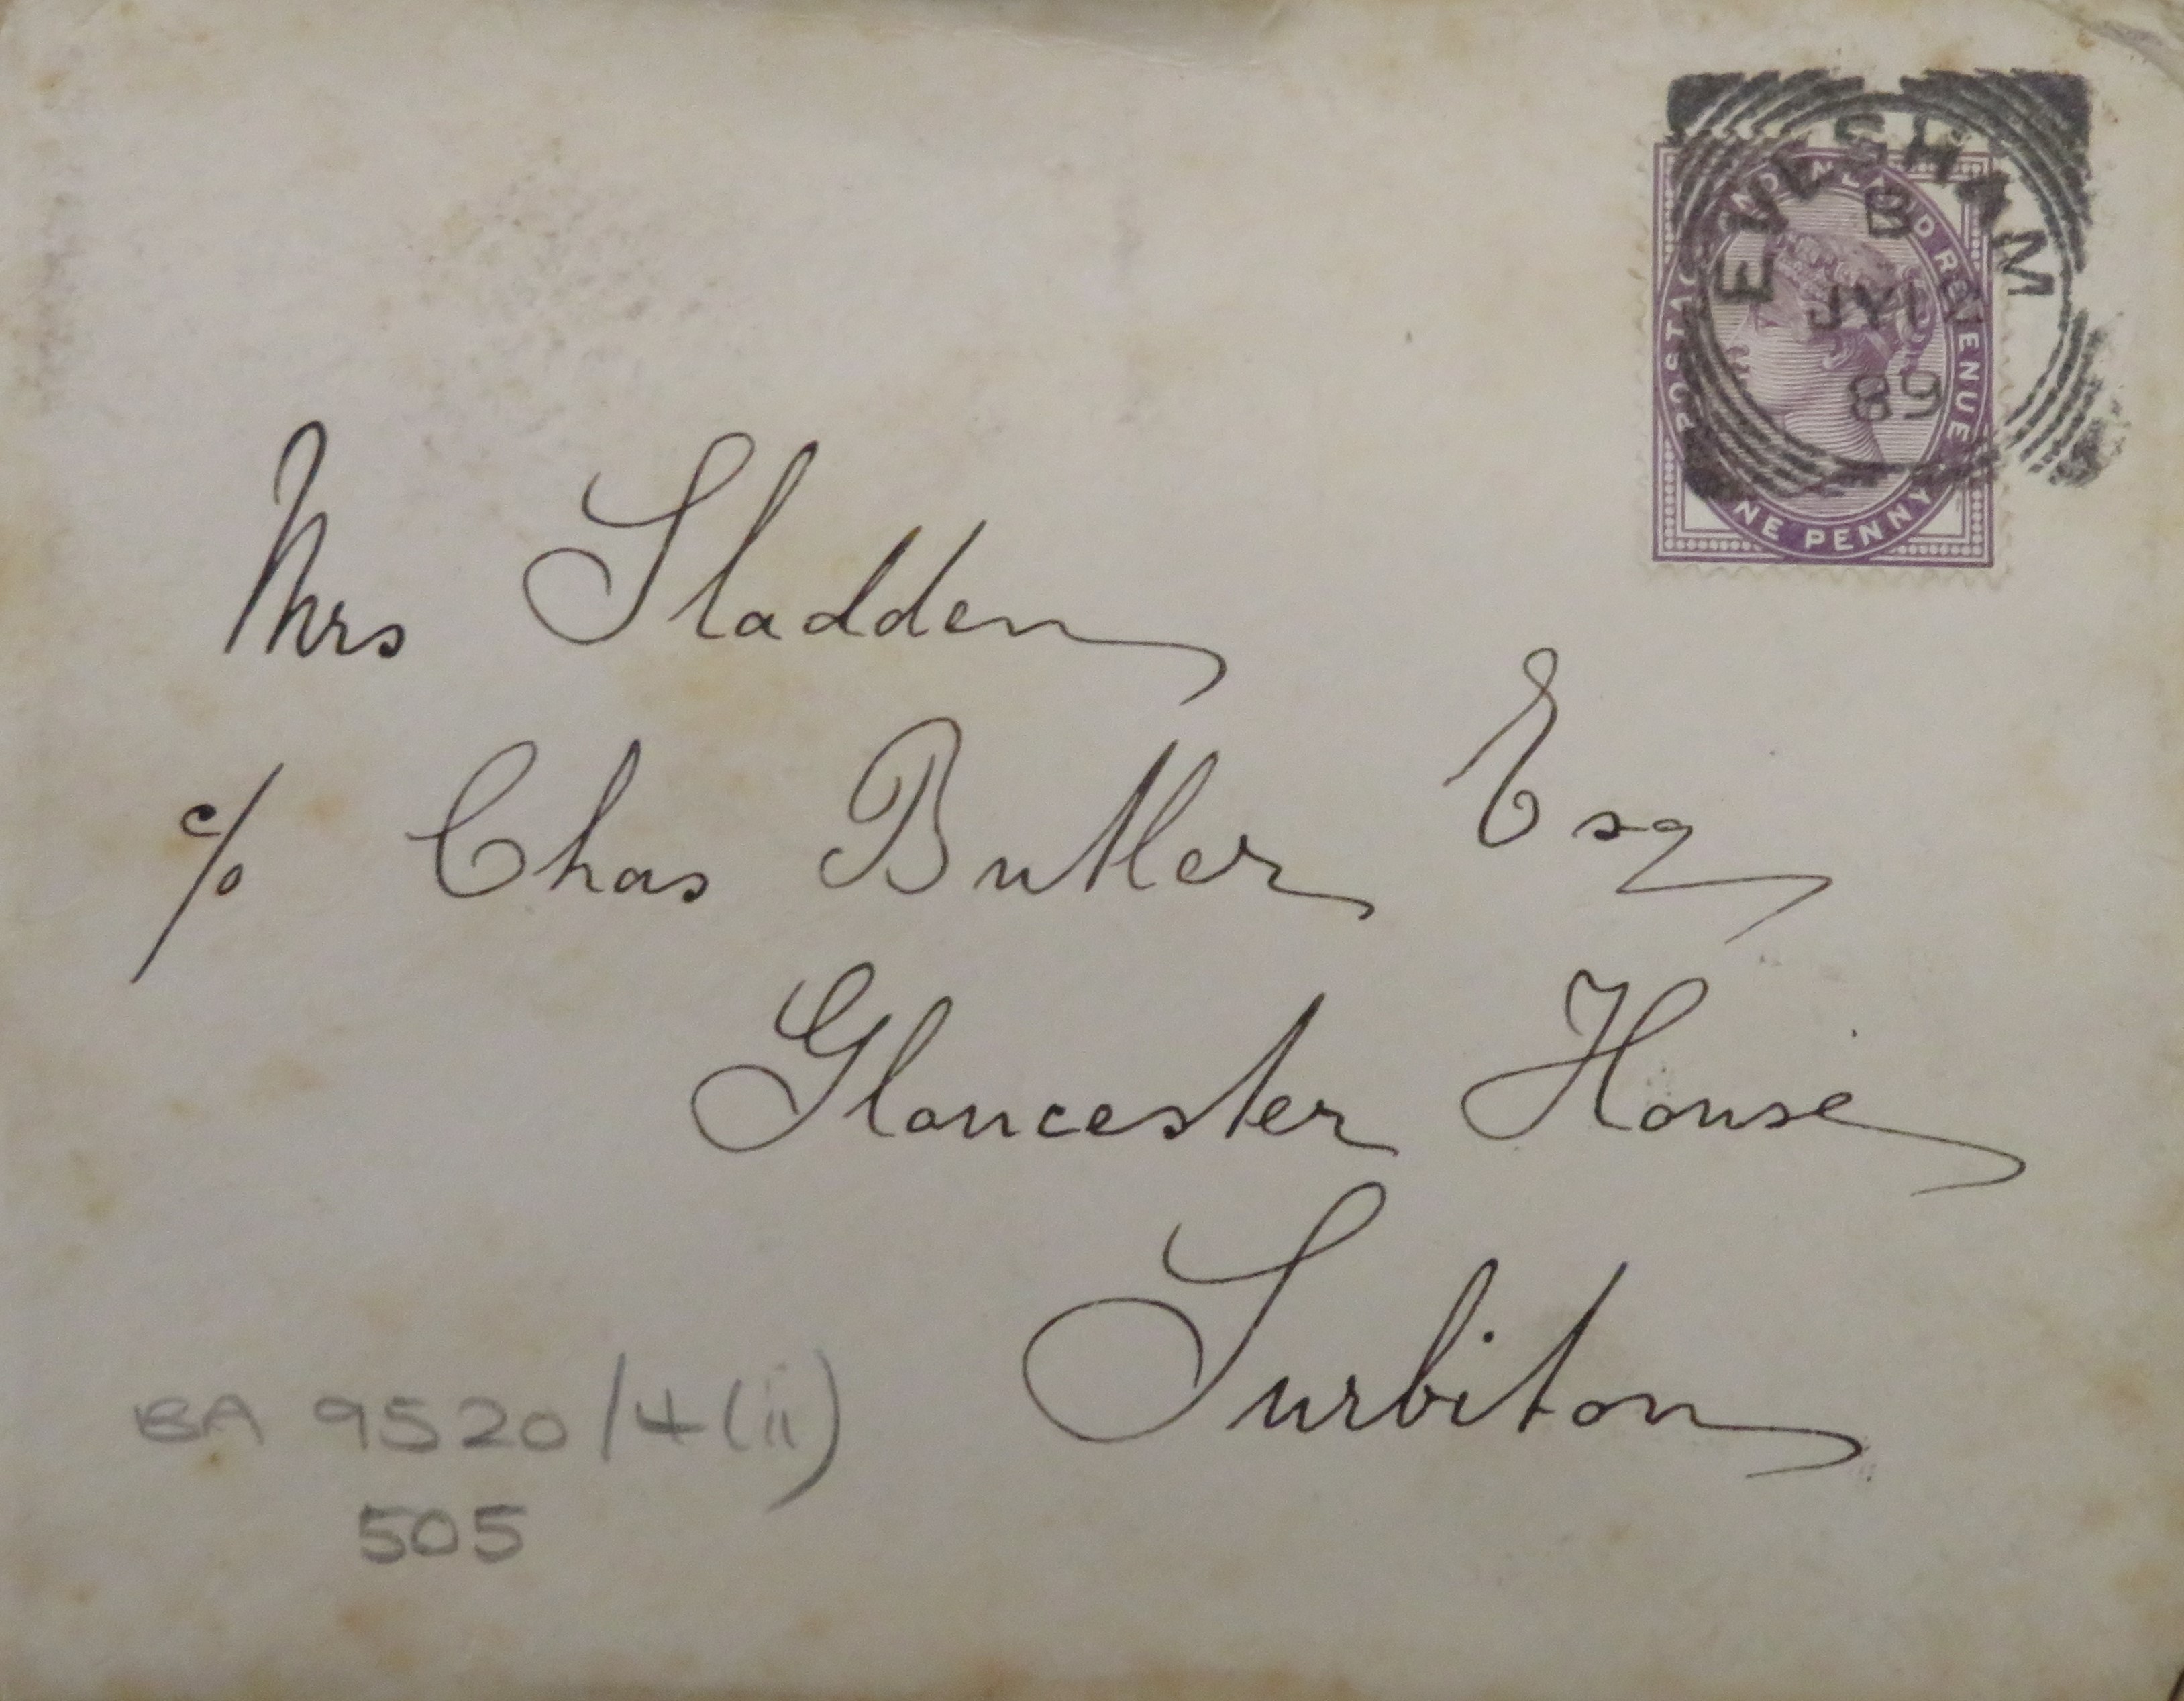 EVESHAM
B
JY
89
POSTAGE AND INLAND REVENUE
ONE PENNY
Mrs Sladden
c/o Chas Butler Esq
Gloucester House
Surbiton
BA 9520/4(ii)
505